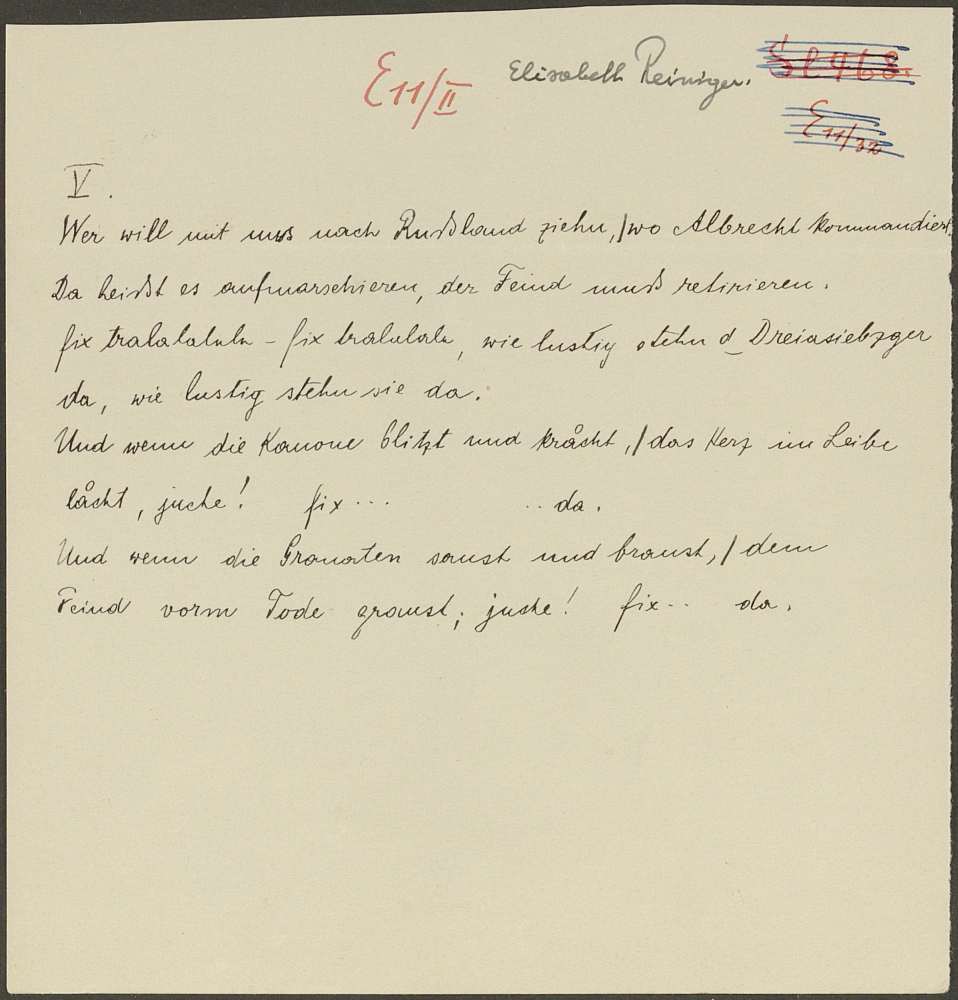 E 11/II Elisabeth Reiniger. St 468.
E 11/32
V.
Wer will mit uns nach Rußland ziehn, / wo Albrecht kommandiert.
Da heißt es aufmarschieren, der Feind muß retirieren.
fix tralalalala - fix tralalala, wie lustig stehn d_ Dreiasiebzger
da, wie lustig stehn sie da.
Und wenn die Kanone blitzt und kråcht, / das Herz im Leibe
låcht, juche! fix ... .. da.
Und wenn die Granaten saust und braust, / dem
Feind vorm Tode graust; juche! fix.. da.